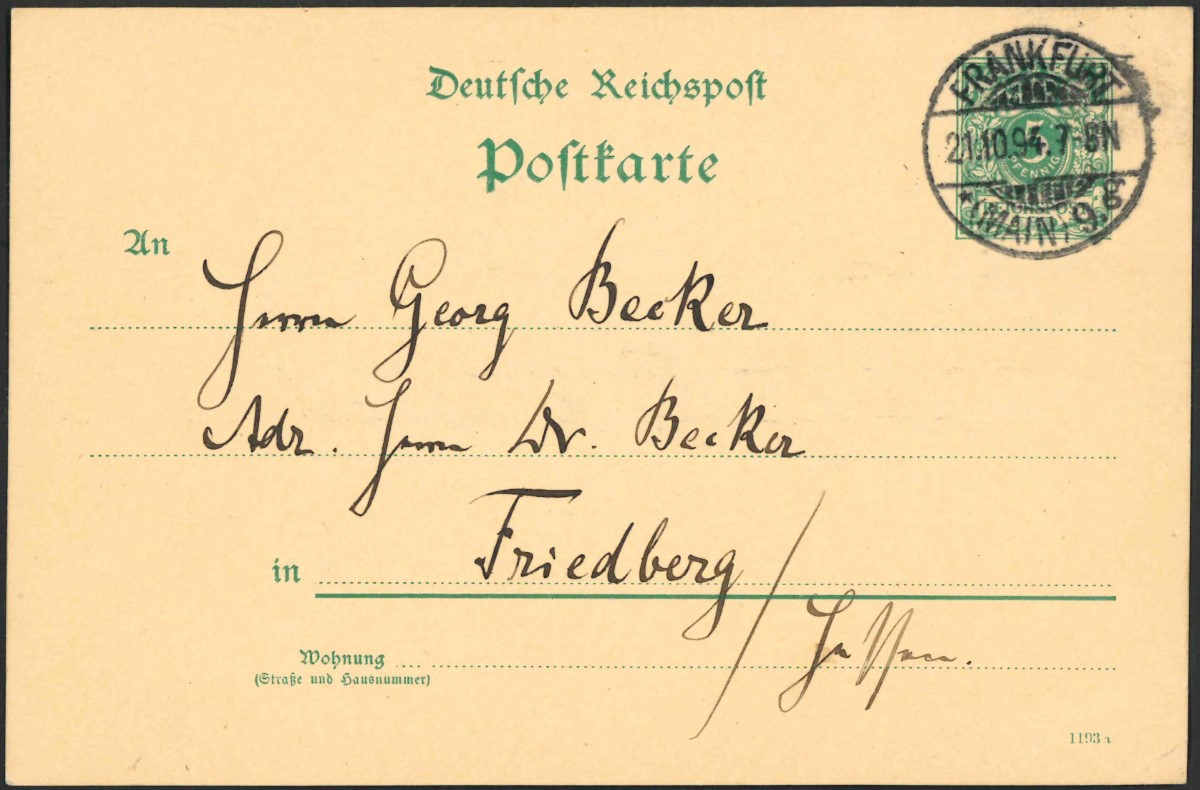 Deutsche Reichspost
Postkarte
FRANKFURT
21.10.94.7-8N
* (MAIN) 9.g
5
PFENNIG
An
Herrn Georg Becker
Adr. Herrn Dr. Becker
in Friedberg /
Hessen.
Wohnung
(Straße und Hausnummer)
1193 a